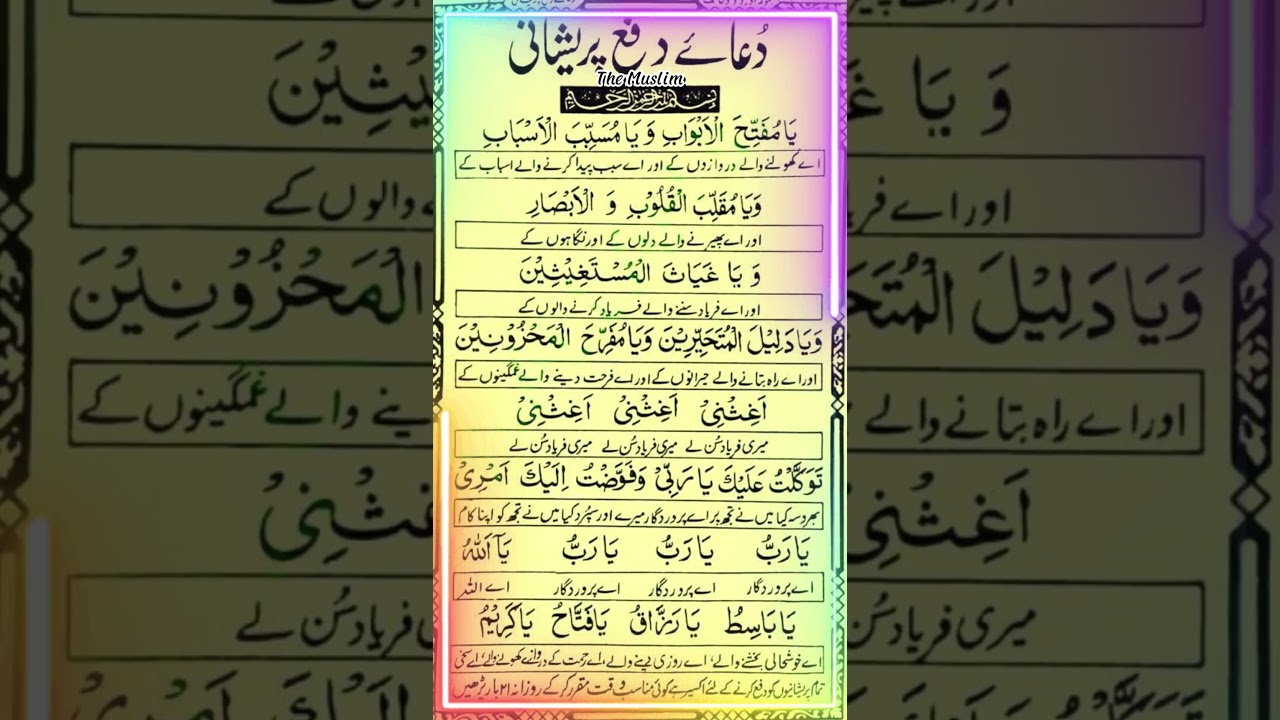 دُعائے دفع پریشانی
The Muslim
بِسْمِ اللهِ الرَّحْمٰنِ الرَّحِيْمِ
يَا مُفَتِّحَ الْاَبْوَابِ وَ يَا مُسَبِّبَ الْاَسْبَابِ
اے کھولنے والے دروازوں کے اور اے سبب پیدا کرنے والے اسباب کے
وَيَا مُقَلِّبَ الْقُلُوْبِ وَ الْاَبْصَارِ
اور اے پھیرنے والے دلوں کے اور نگاہوں کے
وَ يَا غَيَاثَ الْمُسْتَغِيْثِيْنَ
اور اے فریاد سننے والے فریاد کرنے والوں کے
وَيَا دَلِيْلَ الْمُتَحَيِّرِيْنَ وَيَا مُفَرِّحَ الْمَحْزُوْنِيْنَ
اور اے راہ بتانے والے حیرانوں کے اور اے فرحت دینے والے غمگینوں کے
اَغِثْنِیْ اَغِثْنِیْ اَغِثْنِیْ
میری فریاد سُن لے میری فریاد سُن لے میری فریاد سُن لے
تَوَكَّلْتُ عَلَيْكَ يَا رَبِّیْ وَفَوَّضْتُ اِلَيْكَ اَمْرِیْ
بھروسہ کیا میں نے تجھ پر اے پروردگار میرے اور سپرد کیا میں نے تجھ کو اپنا کام
يَا رَبُّ يَا رَبُّ يَا رَبُّ يَا اَللّٰهُ
اے پروردگار اے پروردگار اے پروردگار اے اللہ
يَا بَاسِطُ يَا رَزَّاقُ يَا فَتَّاحُ يَا كَرِيْمُ
اے خوشحالی بخشنے والے، اے روزی دینے والے، اے رحمت کے دروازے کھولنے والے، اے سخی
تمام پریشانیوں کو دفع کرنے کے لئے اکسیر ہے کوئی مناسب وقت مقرر کر کے روزانہ ۲۱ بار پڑھیں